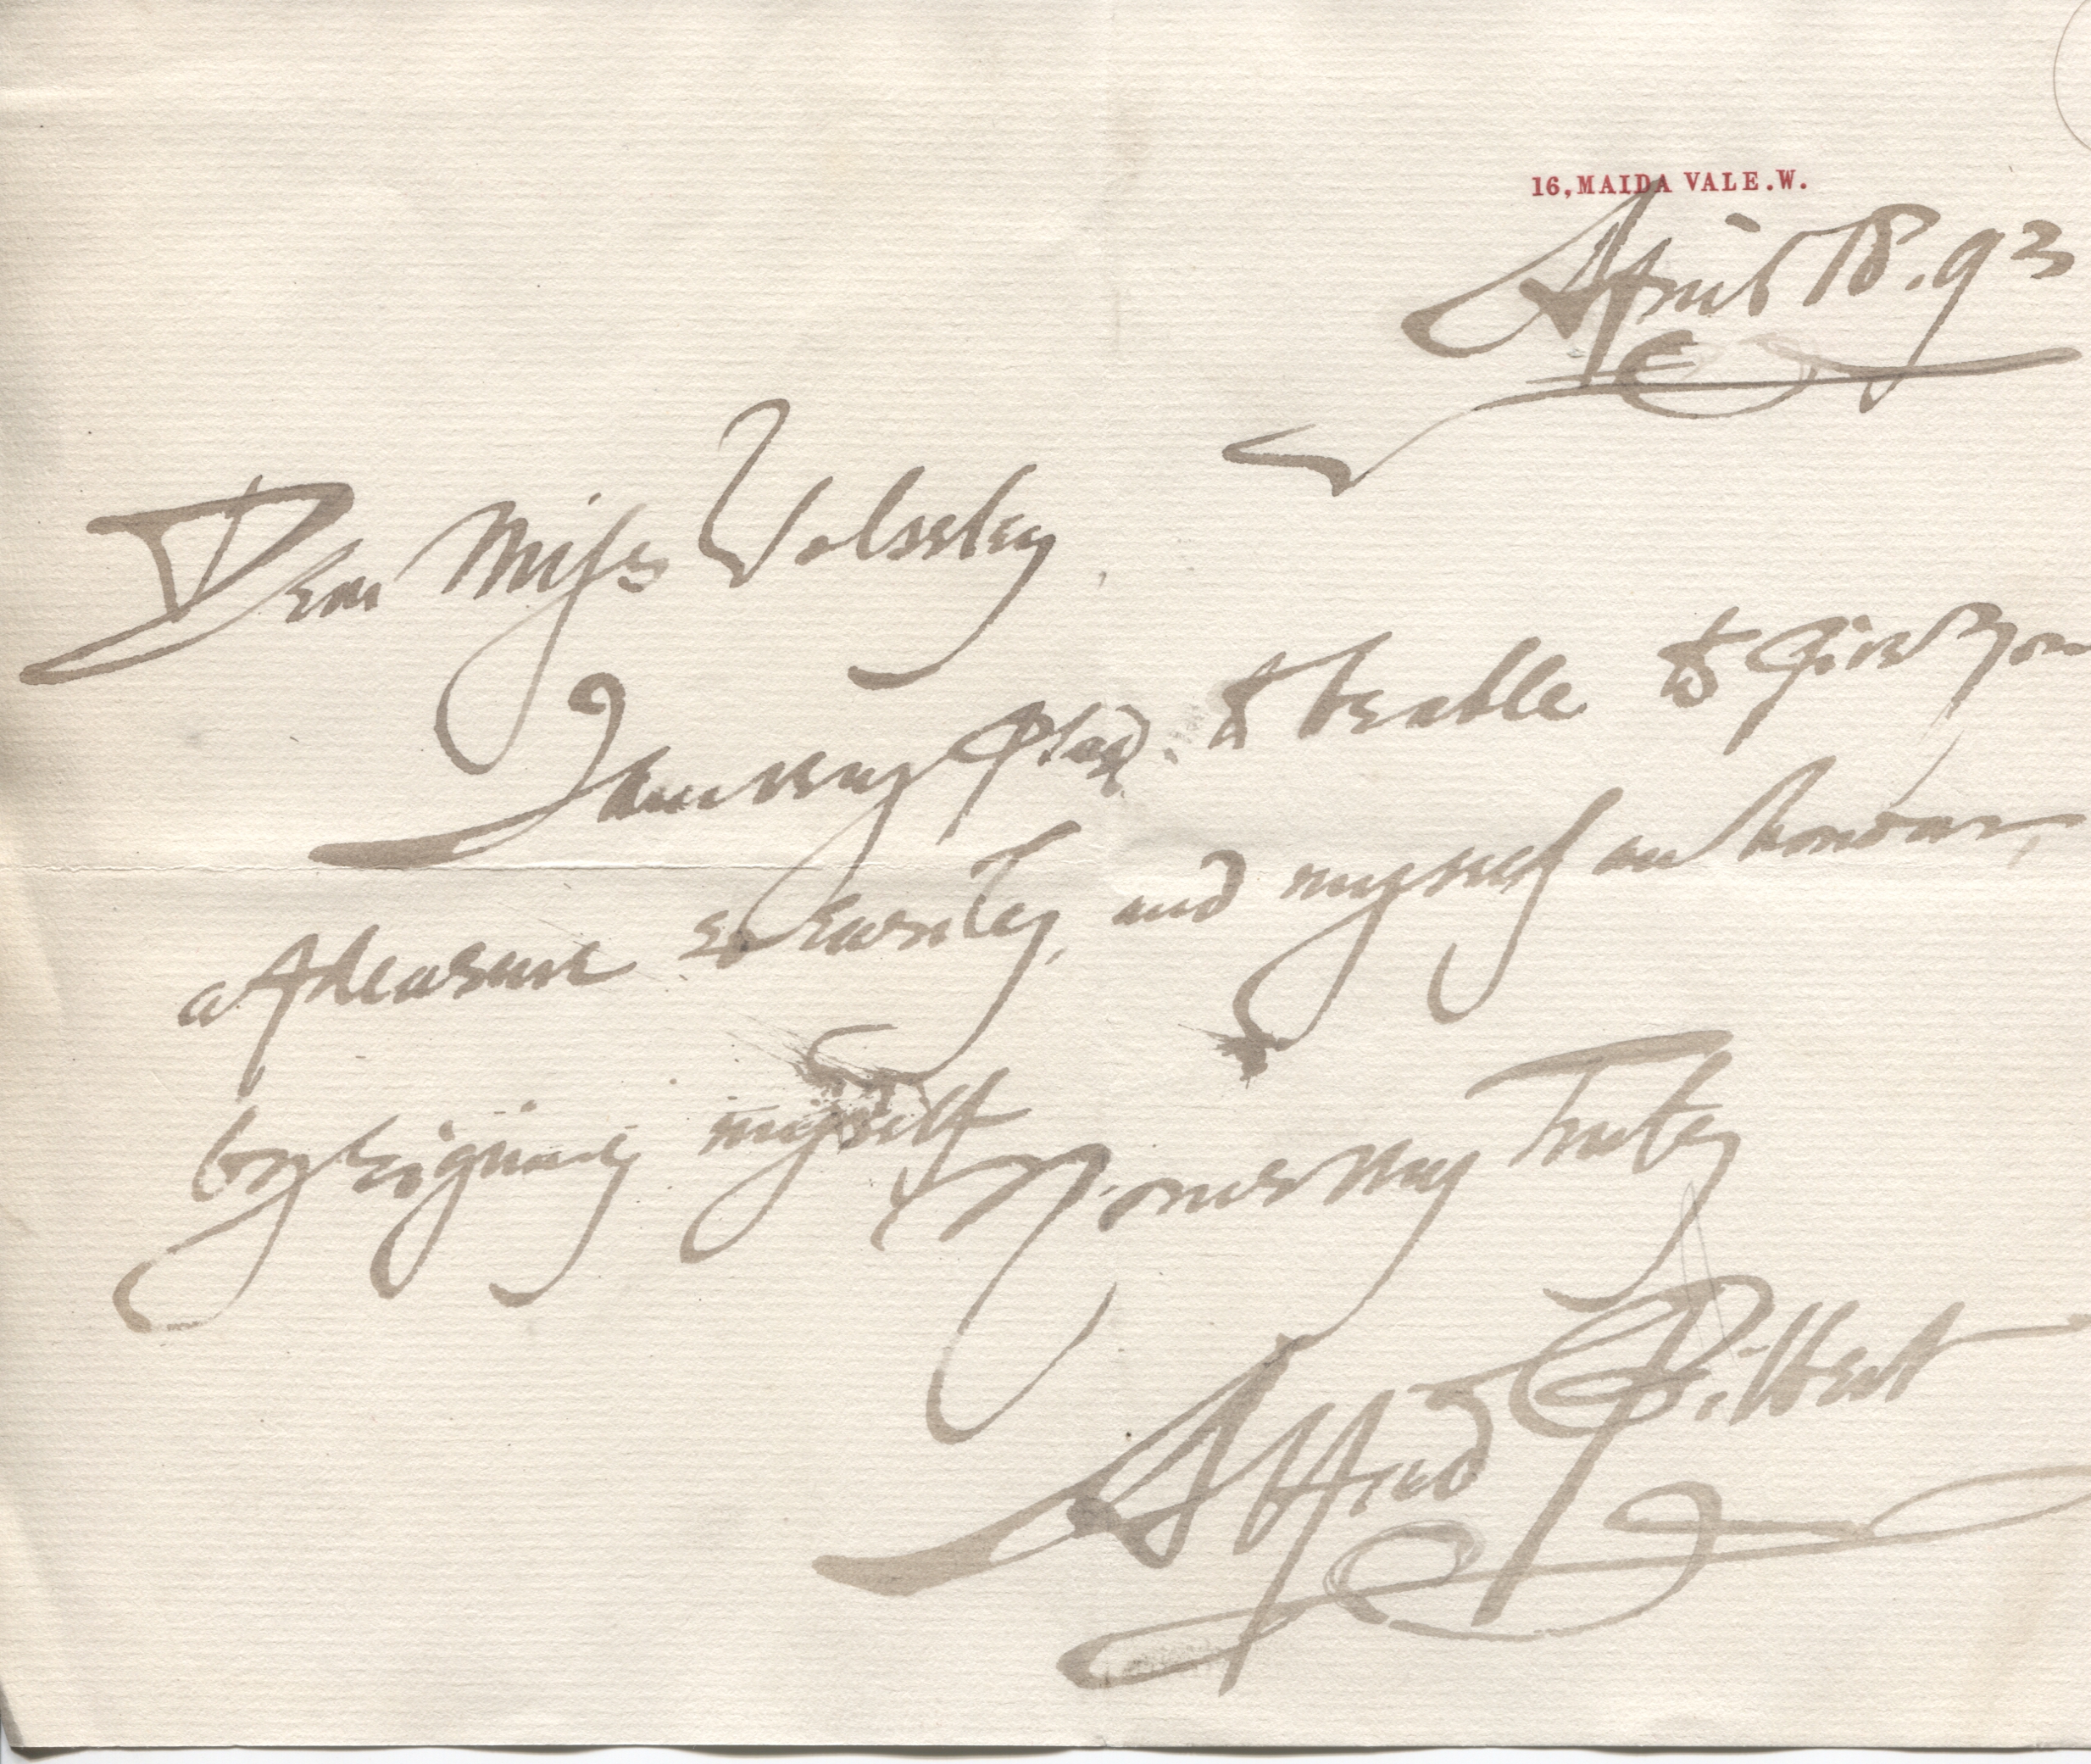 16, MAIDA VALE. W.
April 18. 93
Dear Miss Wolseley
I am very glad to be able to give you
a pleasure so easily, and myself an honour,
by signing myself
Yours very Truly
Alfred Gilbert